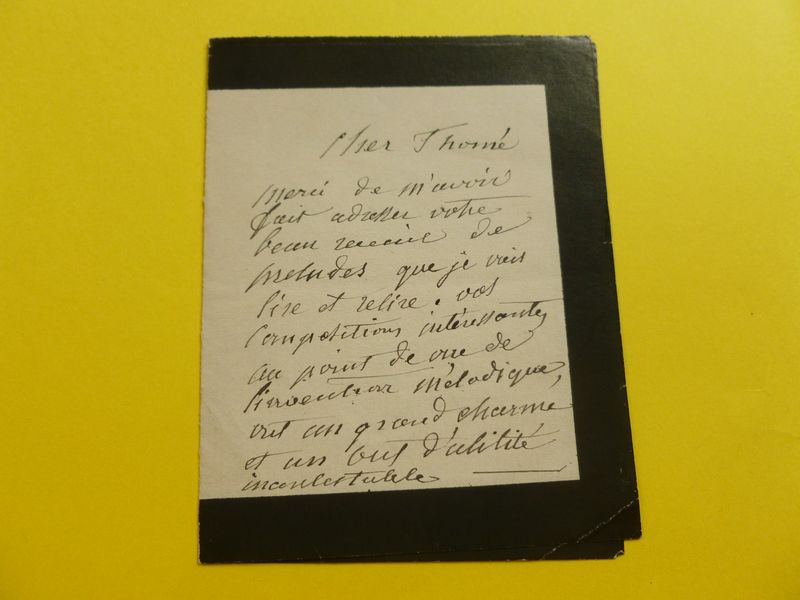 Cher Thomé
merci de m'avoir
fait adresser votre
beau recueil de
preludes que je vais
lire et relire. vos
compositions intéressantes
au point de vue de
l'invention mélodique,
ont un grand charme
et un but d'utilité
incontestable